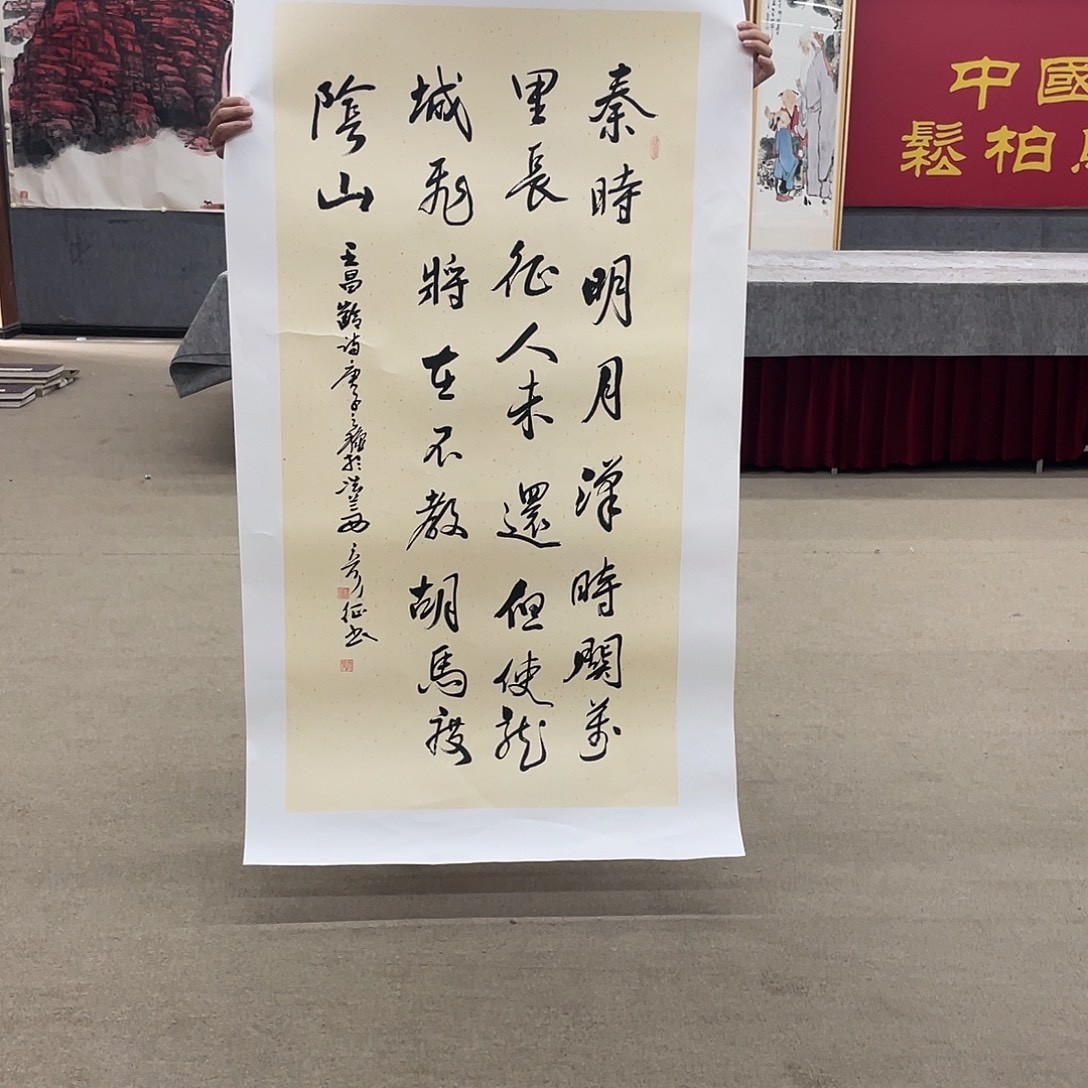 秦時明月漢時關萬
里長征人未還但使龍
城飛將在不教胡馬度
陰山
王昌齡詩庚子之穐於法蘭西彥征書
中國
鬆柏